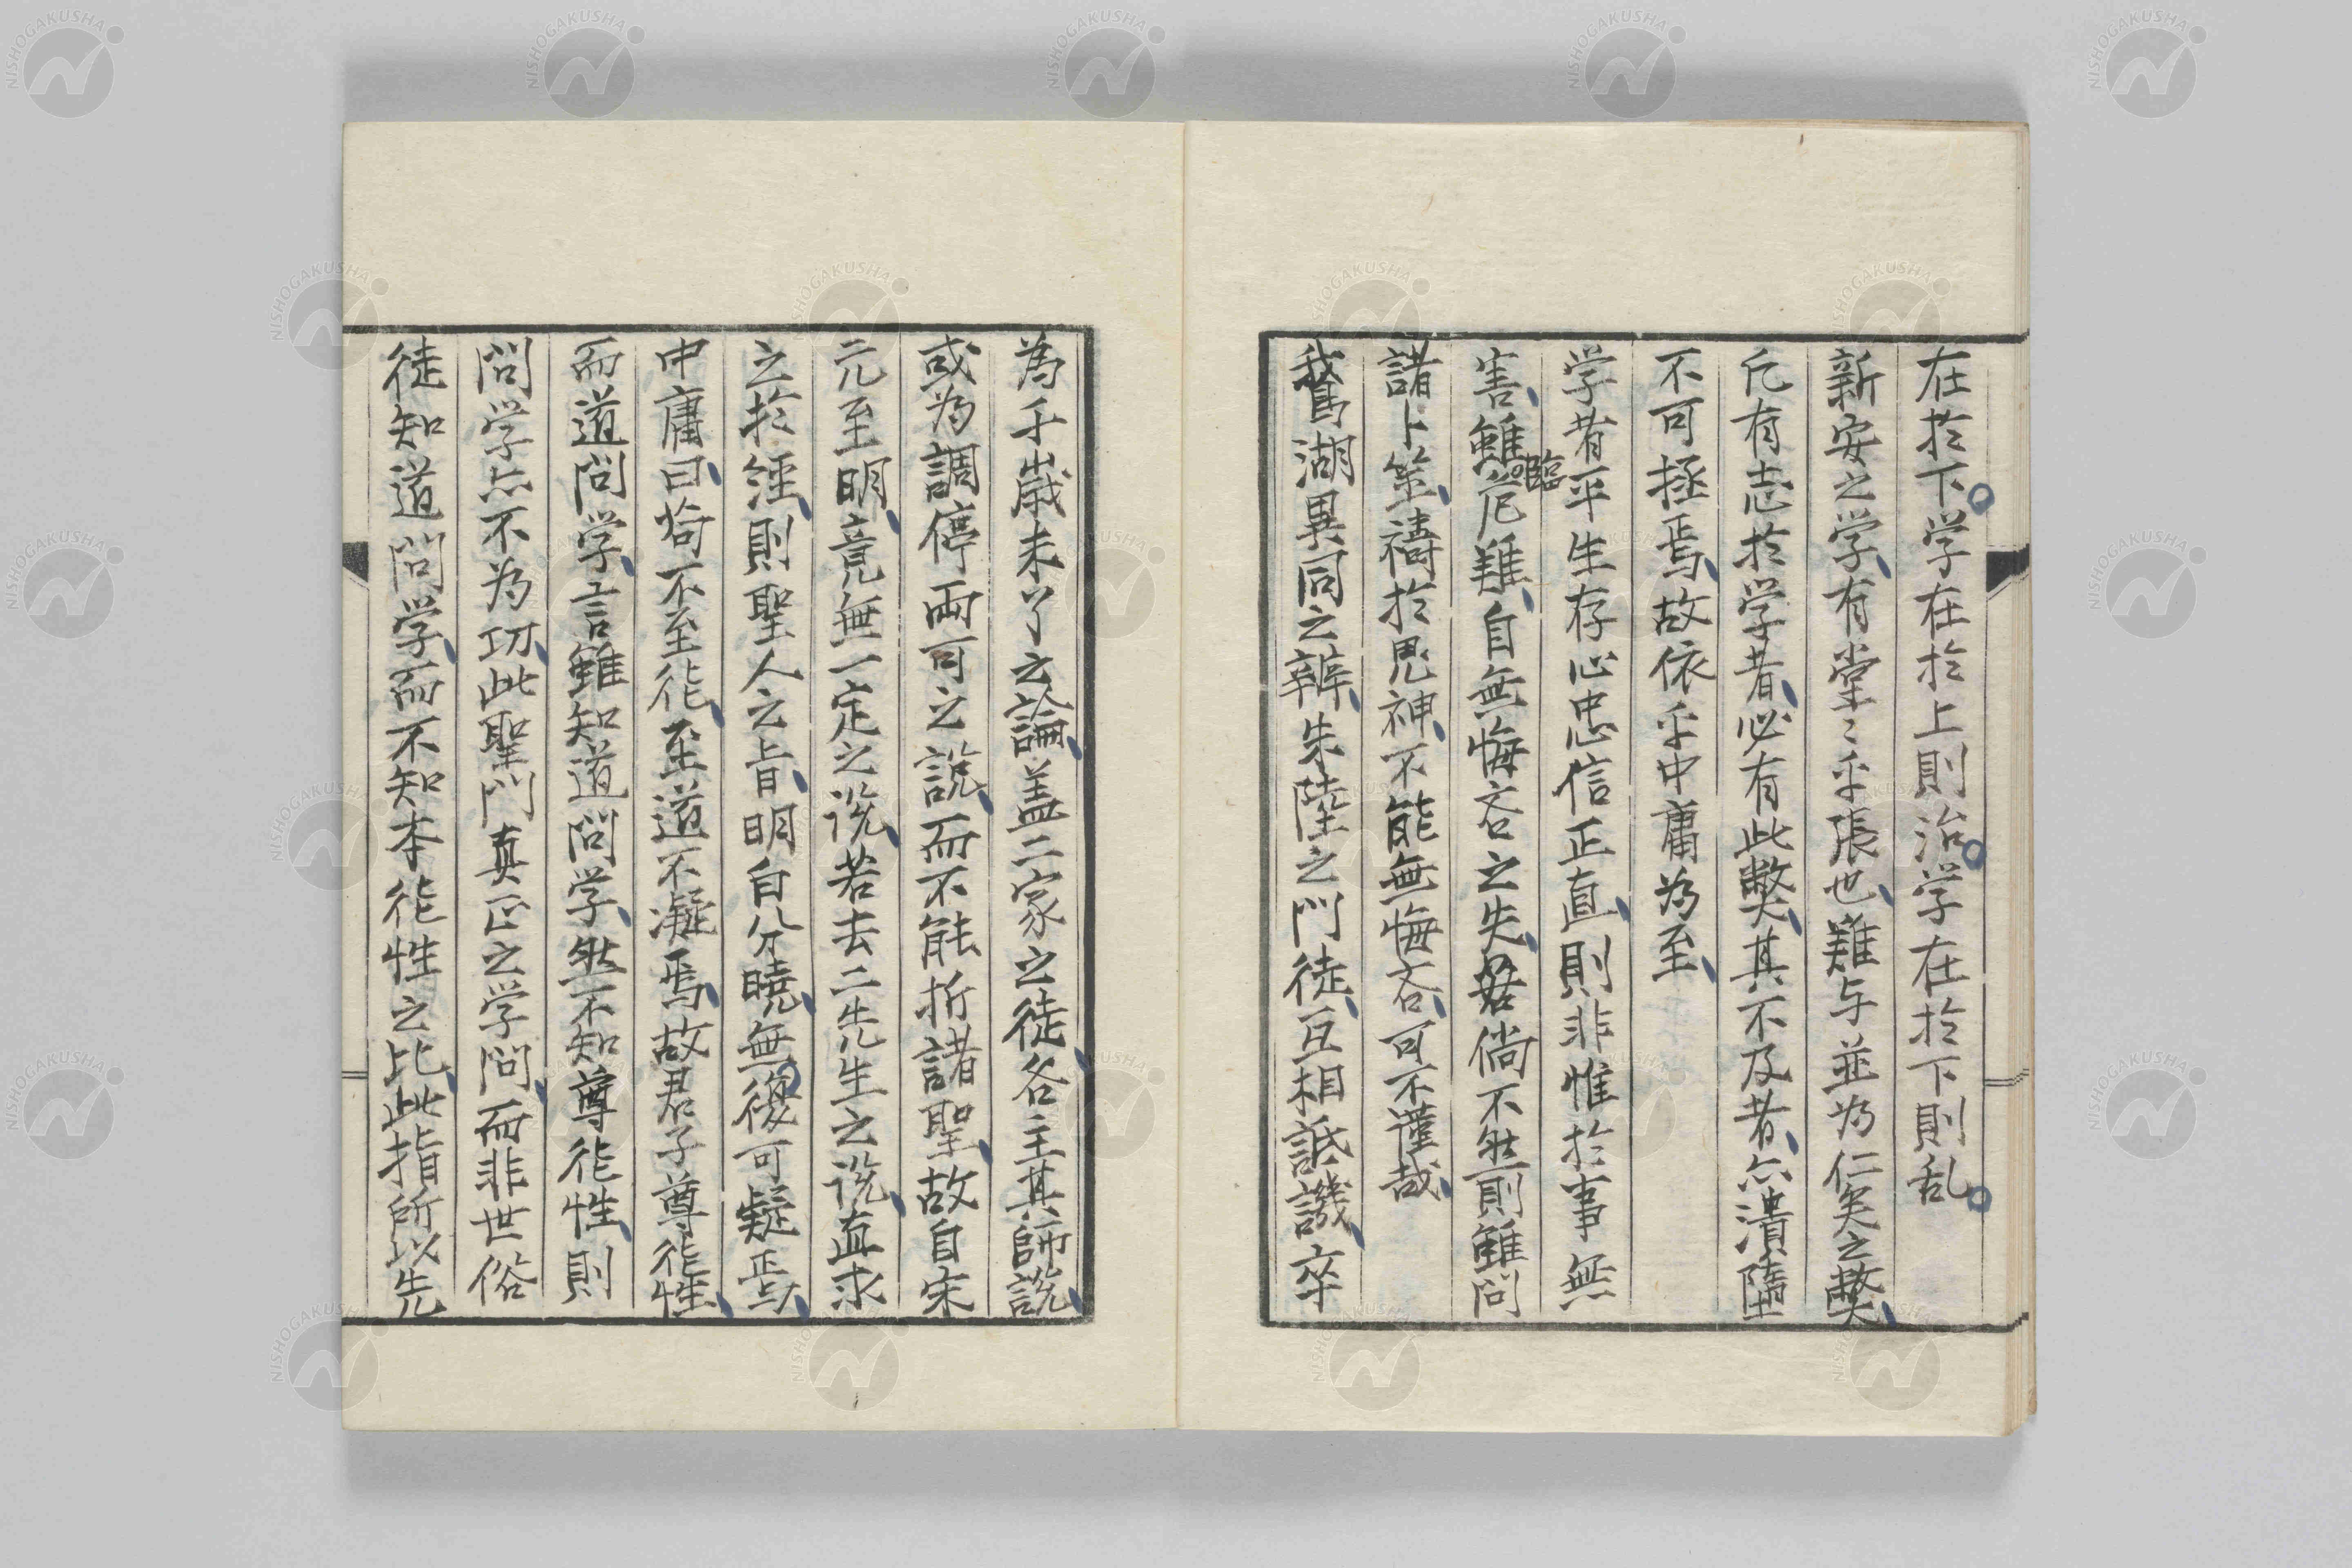 在於下学在於上則治学在於下則乱
新安之学有堂〻乎張也難与並為仁矣之獘
凡有志於学者必有此獘其不及者亦潰墮
不可拯焉故依乎中庸為至
学者平生存心忠信正直則非惟於事無
害雖臨危難自無悔吝之失若倘不然則雖問
諸卜筮禱於鬼神不能無悔吝可不謹哉
鵞湖異同之辨朱陸之門徒互相詆譏卒
為千歳未了之論盖二家之徒各主其師説
或為調停両可之説而不能折諸聖故自宋
元至明竟無一定之説若去二先生之説直求
之於経則聖人之旨明白分曉無復可疑焉
中庸曰苟不至徳至道不凝焉故君子尊徳性
而道問学言雖知道問学然不知尊徳性則
問学亦不為功此聖門真正之学問而非世俗
徒知道問学而不知本徳性之比此指所以先
NISHOGAKUSHA